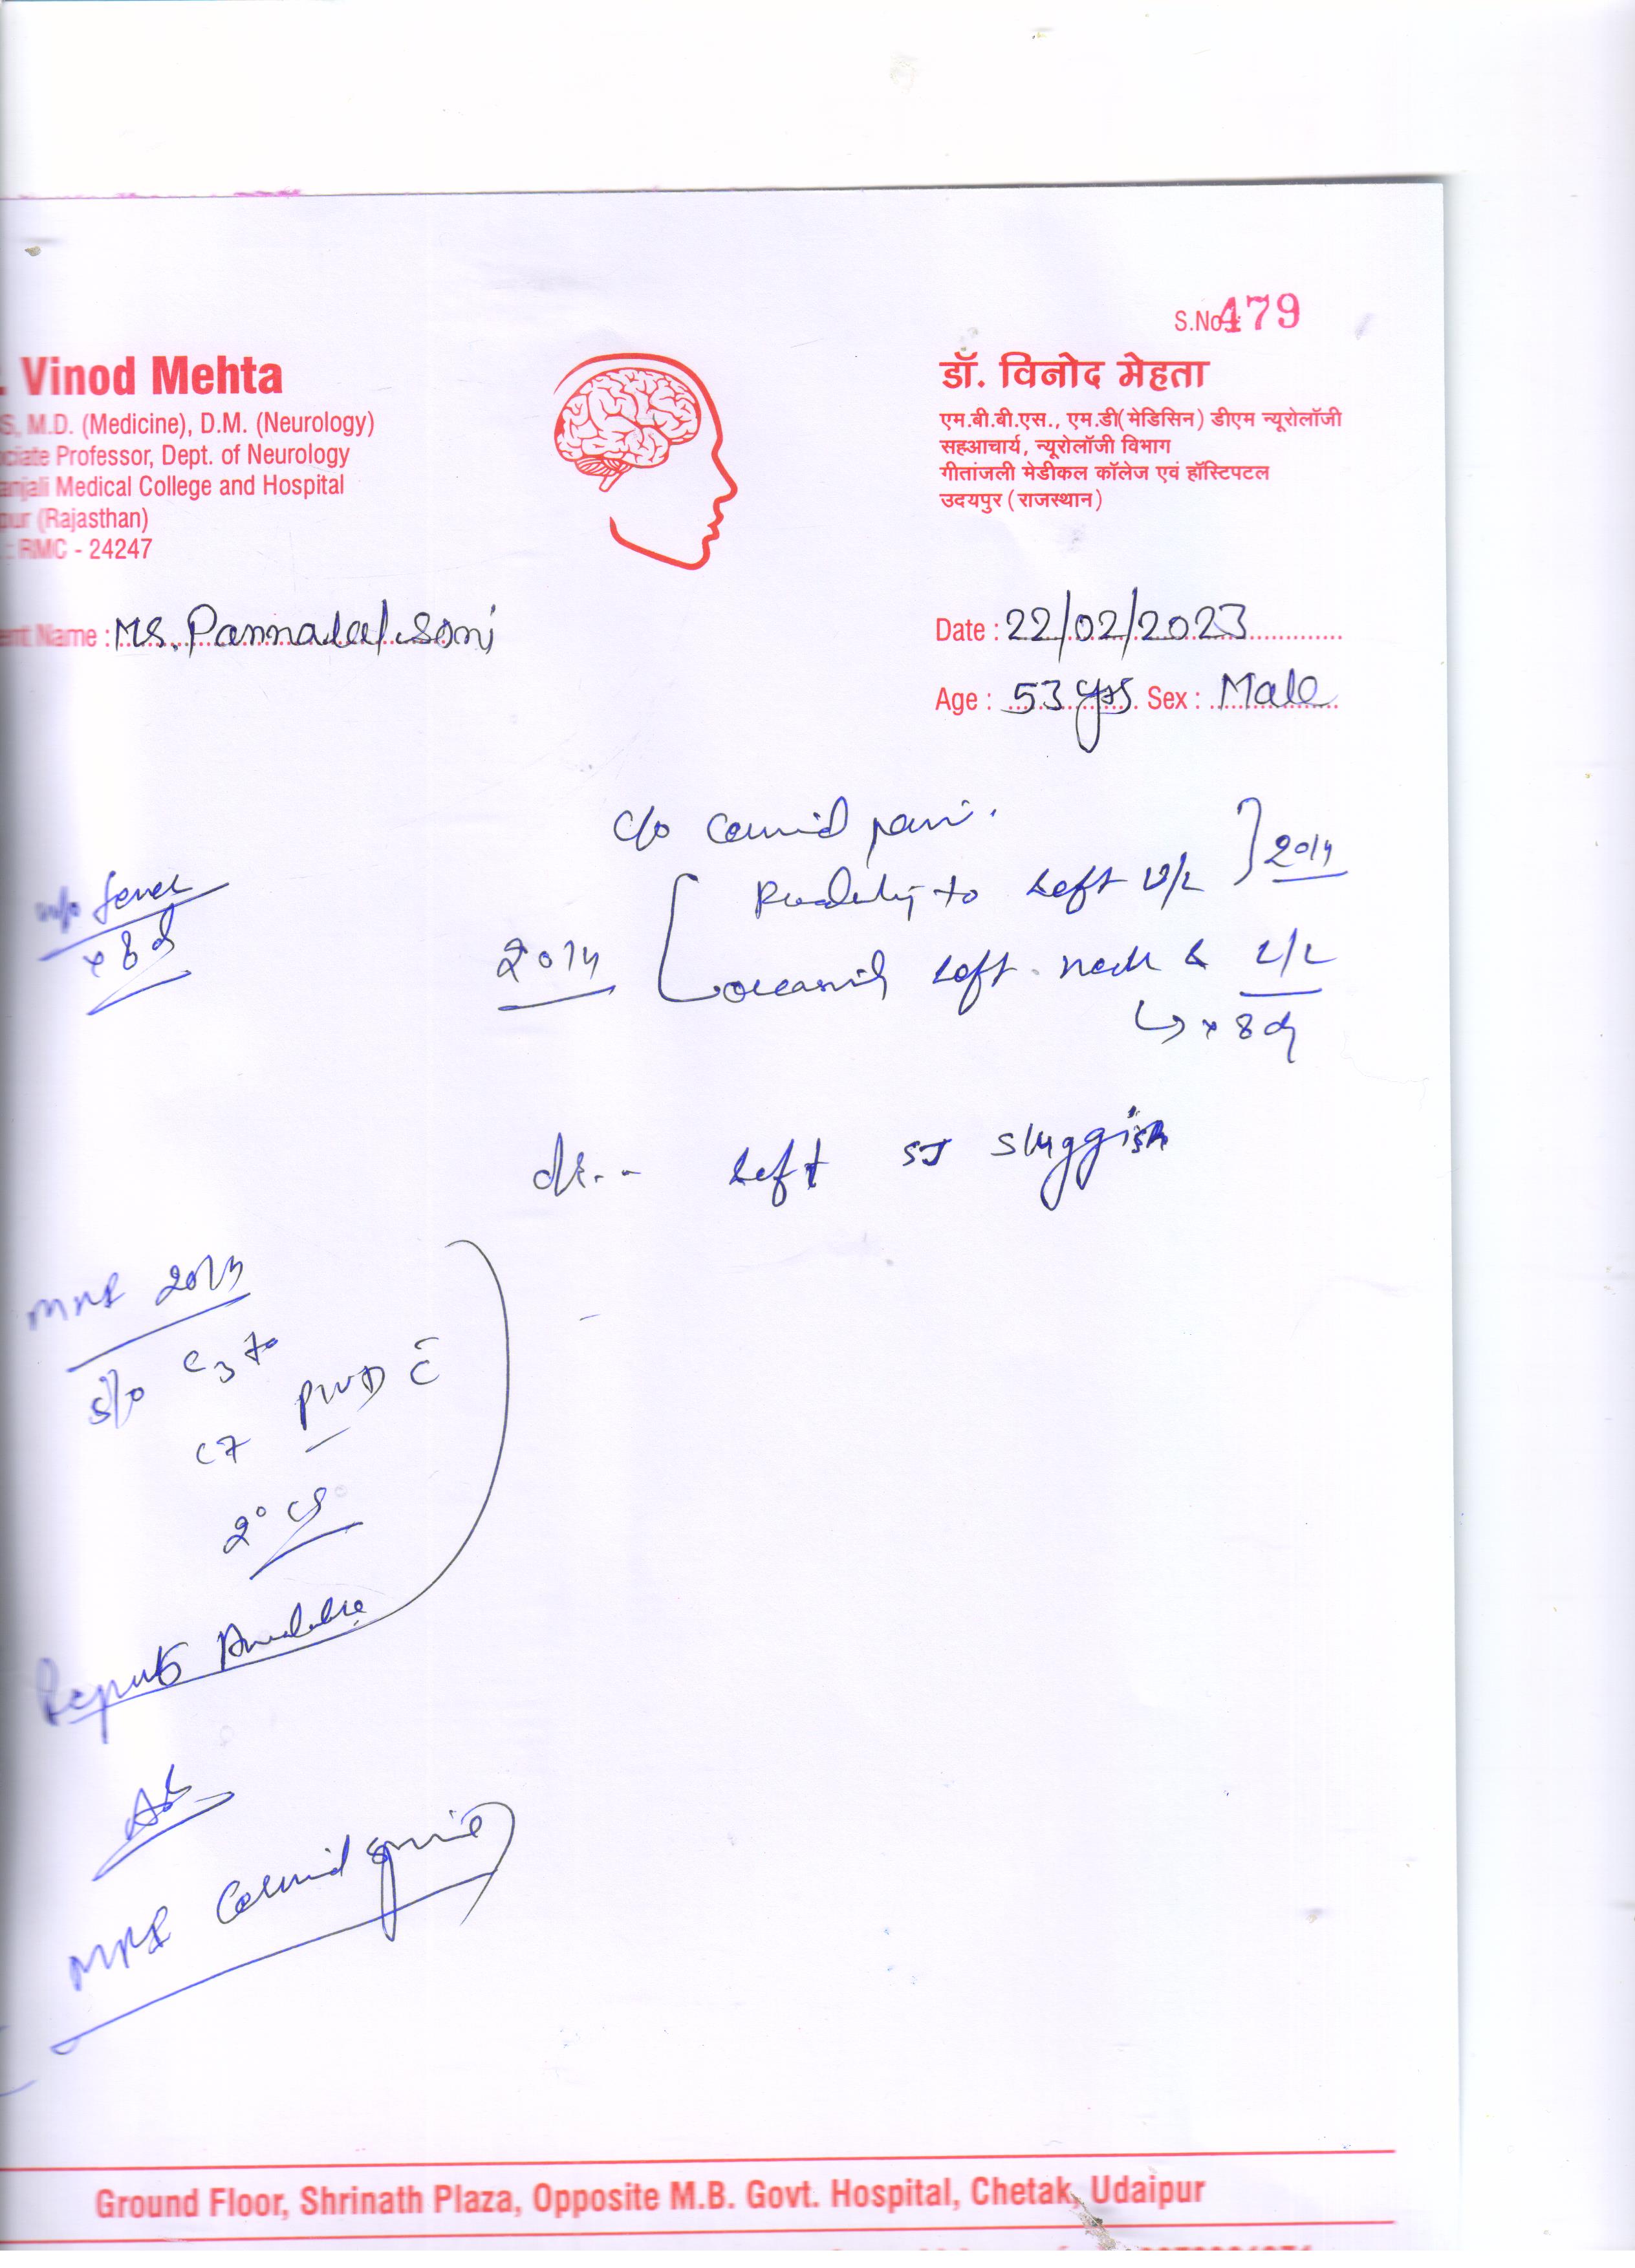 S.No. 479
. Vinod Mehta
S, M.D. (Medicine), D.M. (Neurology)
ciate Professor, Dept. of Neurology
anjali Medical College and Hospital
pur (Rajasthan)
.: RMC - 24247
डॉ. विनोद मेहता
एम.बी.बी.एस., एम.डी(मेडिसिन) डीएम न्यूरोलॉजी
सहआचार्य, न्यूरोलॉजी विभाग
गीतांजली मेडीकल कॉलेज एवं हॉस्टिपटल
उदयपुर (राजस्थान)
ent Name : MS. Pannalal Soni
Date : 22/02/2023
Age : 53 yrs Sex : Male
c/o cervical pain.
Radiating to left U/L } 2014
2014 left neck & L/L
↳ x 8d
fever
x 8d
left SJ sluggish
MRI 201
s/o C3 to
C7 PIVD c̄
2°
Reports Available
MRI Cervical spine
Ground Floor, Shrinath Plaza, Opposite M.B. Govt. Hospital, Chetak, Udaipur